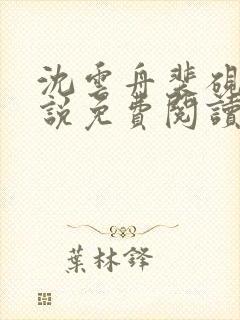 沈雲舟裴硯
說免費閱讀
葉林鋒